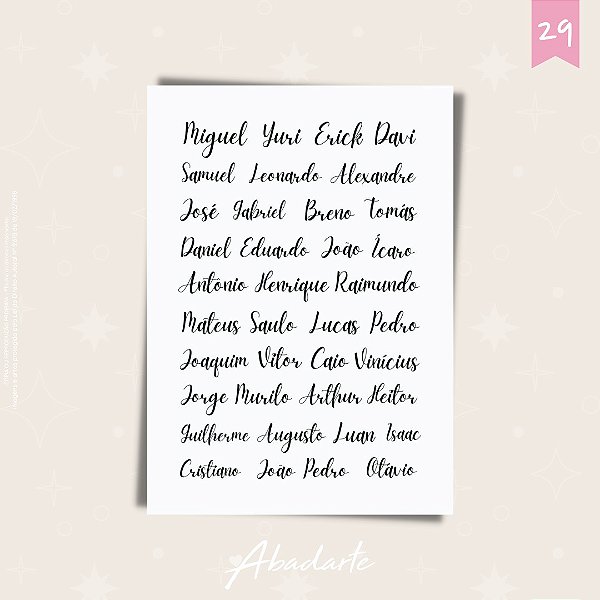 29
Miguel Yuri Erick Davi
Samuel Leonardo Alexandre
José Gabriel Breno Tomás
Daniel Eduardo João Ícaro
Antônio Henrique Raimundo
Mateus Saulo Lucas Pedro
Joaquim Vitor Caio Vinícius
Jorge Murilo Arthur Heitor
Guilherme Augusto Luan Isaac
Cristiano João Pedro Otávio
Abadarte